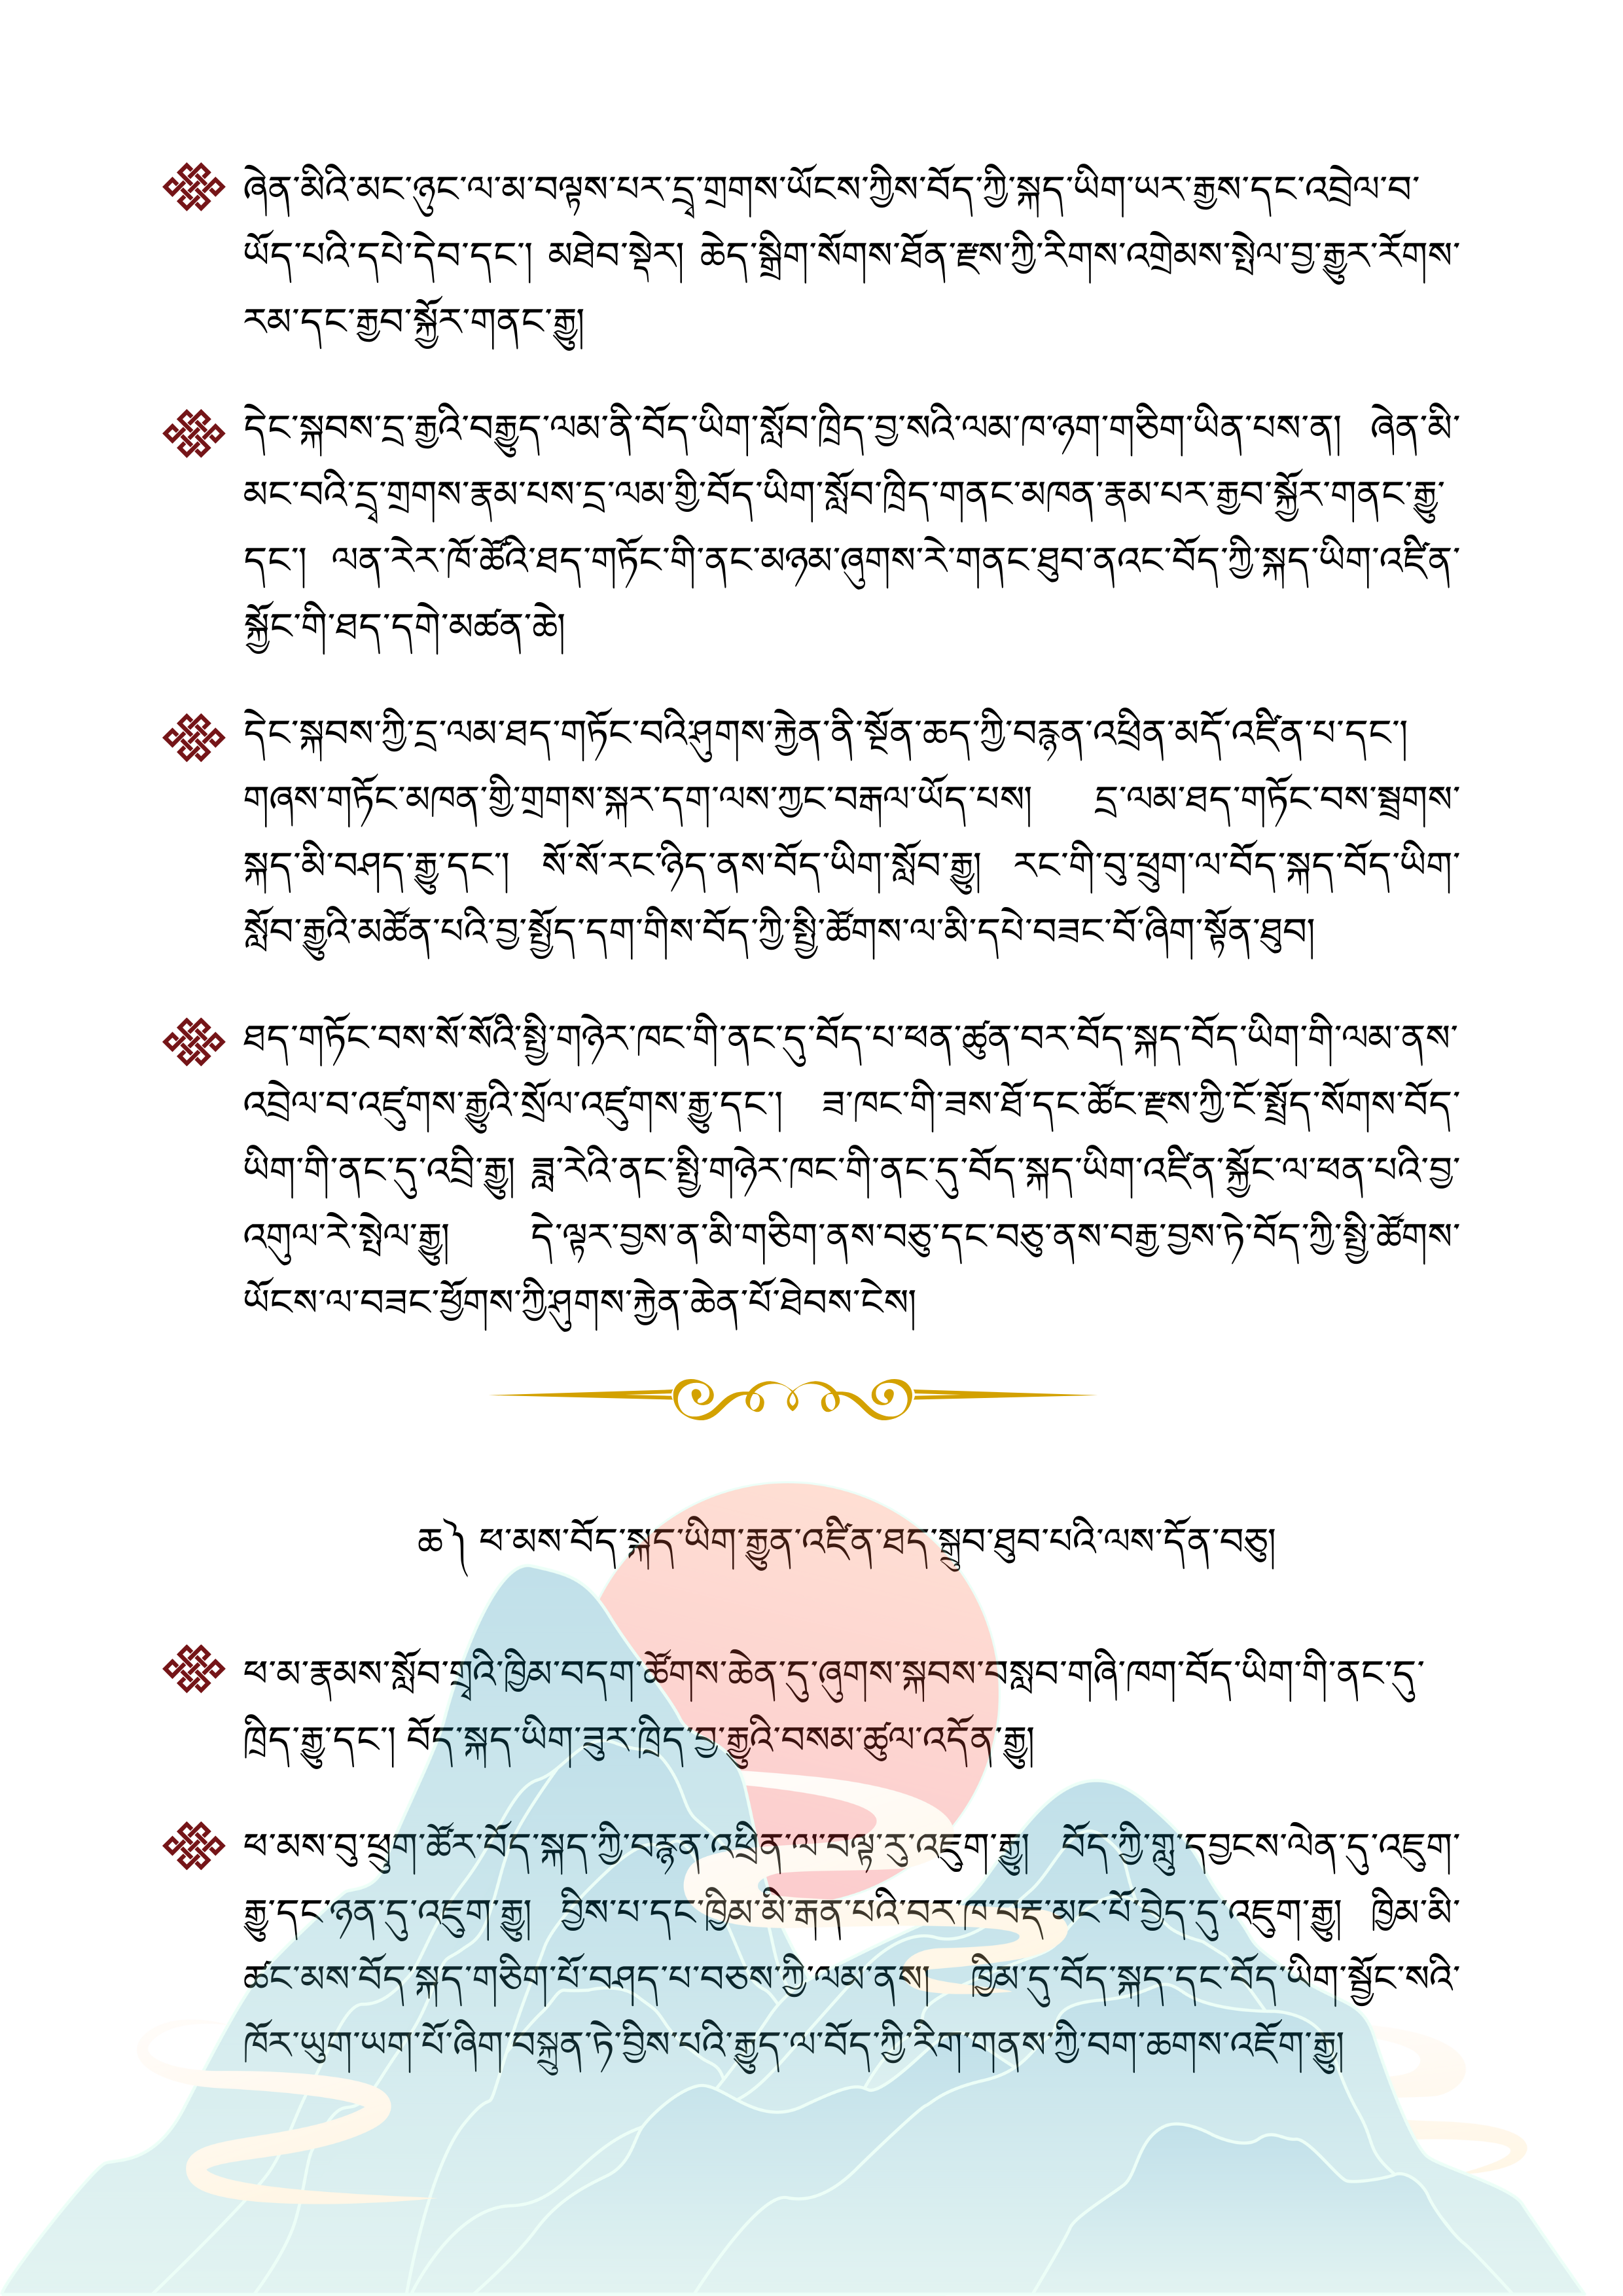 ཞེན་མིའི་མང་ཉུང་ལ་མ་བལྟས་པར་དྲྭ་གྲགས་ཡོངས་ཀྱིས་བོད་ཀྱི་སྐད་ཡིག་ཡར་རྒྱས་དང་འབྲེལ་བ་
ཡོད་པའི་དཔེ་དེབ་དང་། མཐེབ་སྡེར། ཆེད་སྒྲིག་སོགས་ཐོན་རྫས་ཀྱི་རིགས་འགྲེམས་སྤེལ་བྱ་རྒྱུར་རོགས་
རམ་དང་རྒྱབ་སྐྱོར་གནང་རྒྱུ།
དེང་སྐབས་དྲ་རྒྱའི་བརྒྱུད་ལམ་ནི་བོད་ཡིག་སློབ་ཁྲིད་བྱ་སའི་ལམ་ཁ་ཉག་གཅིག་ཡིན་པས་ན། ཞེན་མི་
མང་བའི་དྲྭ་གྲགས་རྣམ་པས་དྲ་ལམ་གྱི་བོད་ཡིག་སློབ་ཁྲིད་གནང་མཁན་རྣམ་པར་རྒྱབ་སྐྱོར་གནང་རྒྱུ་
དང་། ལན་རེར་ཁོ་ཚོའི་ཐད་གཏོང་གི་ནང་མཉམ་ཞུགས་རེ་གནང་ཐུབ་ནའང་བོད་ཀྱི་སྐད་ཡིག་འཛིན་
སྐྱོང་གི་ཐད་དགེ་མཚན་ཆེ།
དེང་སྐབས་ཀྱི་དྲ་ལམ་ཐད་གཏོང་བའི་ཤུགས་རྐྱེན་ནི་སྔོན་ཆད་ཀྱི་བརྙན་འཕྲིན་མདོ་འཛིན་པ་དང་།
གཞས་གཏོང་མཁན་གྱི་གྲགས་སྐར་དག་ལས་ཀྱང་བརྒལ་ཡོད་པས། དྲ་ལམ་ཐད་གཏོང་བས་སྦྲགས་
སྐད་མི་བཤད་རྒྱུ་དང་། སོ་སོ་རང་ཉིད་ནས་བོད་ཡིག་སློབ་རྒྱུ། རང་གི་བུ་ཕྲུག་ལ་བོད་སྐད་བོད་ཡིག་
སློབ་རྒྱུའི་མཚོན་པའི་བྱ་སྤྱོད་དག་གིས་བོད་ཀྱི་སྤྱི་ཚོགས་ལ་མི་དཔེ་བཟང་བོ་ཞིག་སྟོན་ཐུབ།
ཐད་གཏོང་བས་སོ་སོའི་སྤྱི་གཉེར་ཁང་གི་ནང་དུ་བོད་པ་ཕན་ཚུན་བར་བོད་སྐད་བོད་ཡིག་གི་ལམ་ནས་
འབྲེལ་བ་འཛུགས་རྒྱུའི་སྲོལ་འཛུགས་རྒྱུ་དང་། ཟ་ཁང་གི་ཟས་ཐོ་དང་ཚོང་རྫས་ཀྱི་ངོ་སྤྲོད་སོགས་བོད་
ཡིག་གི་ནང་དུ་འབྲི་རྒྱུ། ཟླ་རེའི་ནང་སྤྱི་གཉེར་ཁང་གི་ནང་དུ་བོད་སྐད་ཡིག་འཛིན་སྐྱོང་ལ་ཕན་པའི་བྱ་
འགུལ་རེ་སྤེལ་རྒྱུ། དེ་ལྟར་བྱས་ན་མི་གཅིག་ནས་བཅུ་དང་བཅུ་ནས་བརྒྱ་བྱས་ཏེ་བོད་ཀྱི་སྤྱི་ཚོགས་
ཡོངས་ལ་བཟང་ཕྱོགས་ཀྱི་ཤུགས་རྐྱེན་ཆེན་པོ་ཐེབས་ངེས།
ཆ༽ ཕ་མས་བོད་སྐད་ཡིག་རྒྱུན་འཛིན་ཐད་སྒྲུབ་ཐུབ་པའི་ལས་དོན་བཅུ།
ཕ་མ་རྣམས་སློབ་གྲྭའི་ཁྱིམ་བདག་ཚོགས་ཆེན་དུ་ཞུགས་སྐབས་བསླབ་གཞི་ཁག་བོད་ཡིག་གི་ནང་དུ་
ཁྲིད་རྒྱུ་དང་། བོད་སྐད་ཡིག་ཟུར་ཁྲིད་བྱ་རྒྱུའི་བསམ་ཚུལ་འདོན་རྒྱུ།
ཕ་མས་བུ་ཕྲུག་ཚོར་བོད་སྐད་ཀྱི་བརྙན་འཕྲིན་ལ་བལྟ་རུ་འཇུག་རྒྱུ། བོད་ཀྱི་གླུ་དབྱངས་ལེན་དུ་འཇུག་
རྒྱུ་དང་ཉན་དུ་འཇུག་རྒྱུ། བྱིས་པ་དང་ཁྱིམ་མི་རྒན་པའི་བར་ཁ་བརྡ་མང་པོ་བྱེད་དུ་འཇུག་རྒྱུ། ཁྱིམ་མི་
ཚང་མས་བོད་སྐད་གཅིག་པོ་བཤད་པ་བཅས་ཀྱི་ལམ་ནས། ཁྱིམ་དུ་བོད་སྐད་དང་བོད་ཡིག་སྦྱོང་སའི་
ཁོར་ཡུག་ཡག་པོ་ཞིག་བསྐྲུན་ཏེ་བྱིས་པའི་རྒྱུད་ལ་བོད་ཀྱི་རིག་གནས་ཀྱི་བག་ཆགས་འཇོག་རྒྱུ།